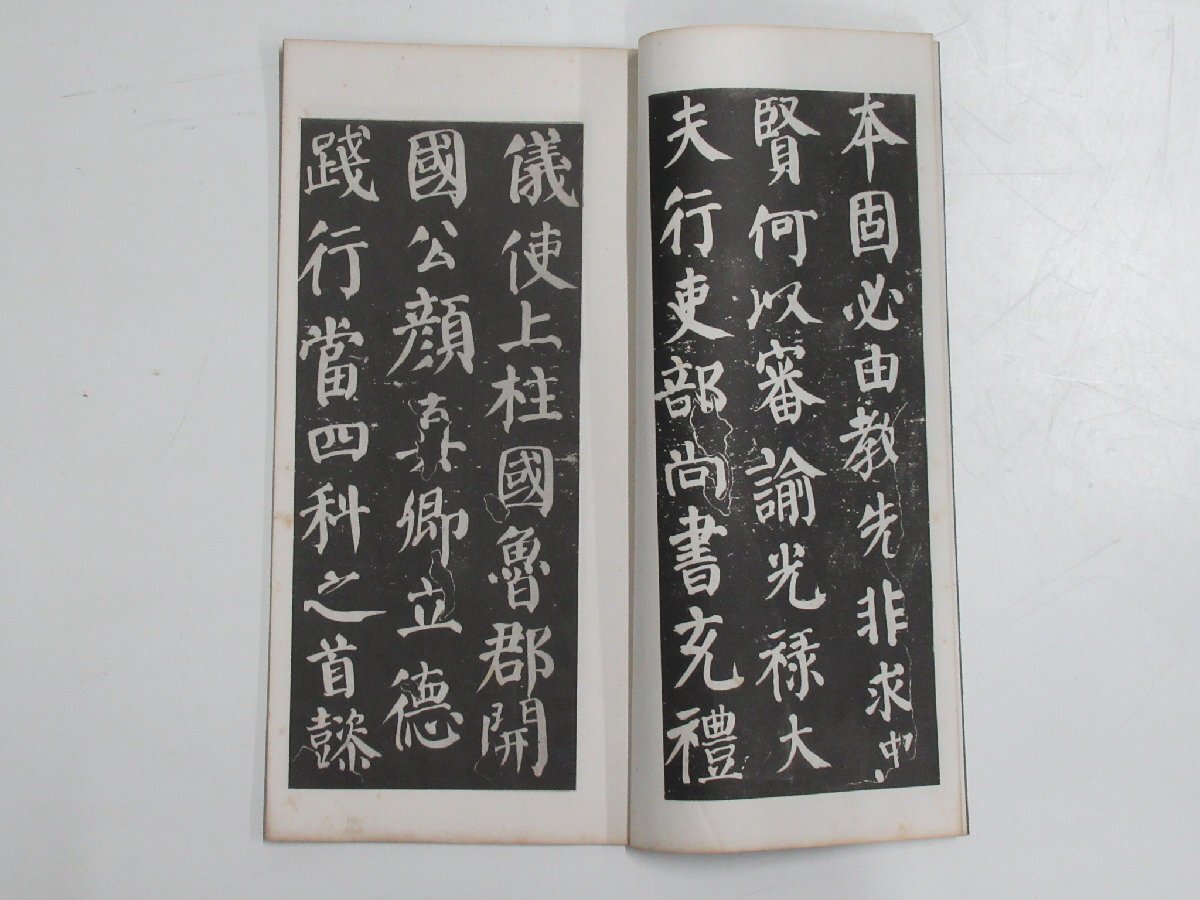 本固必由教先非求中
賢何以審諭光禄大
夫行吏部尚書充禮
儀使上柱國魯郡開
國公顔真卿立德
踐行當四科之首懿